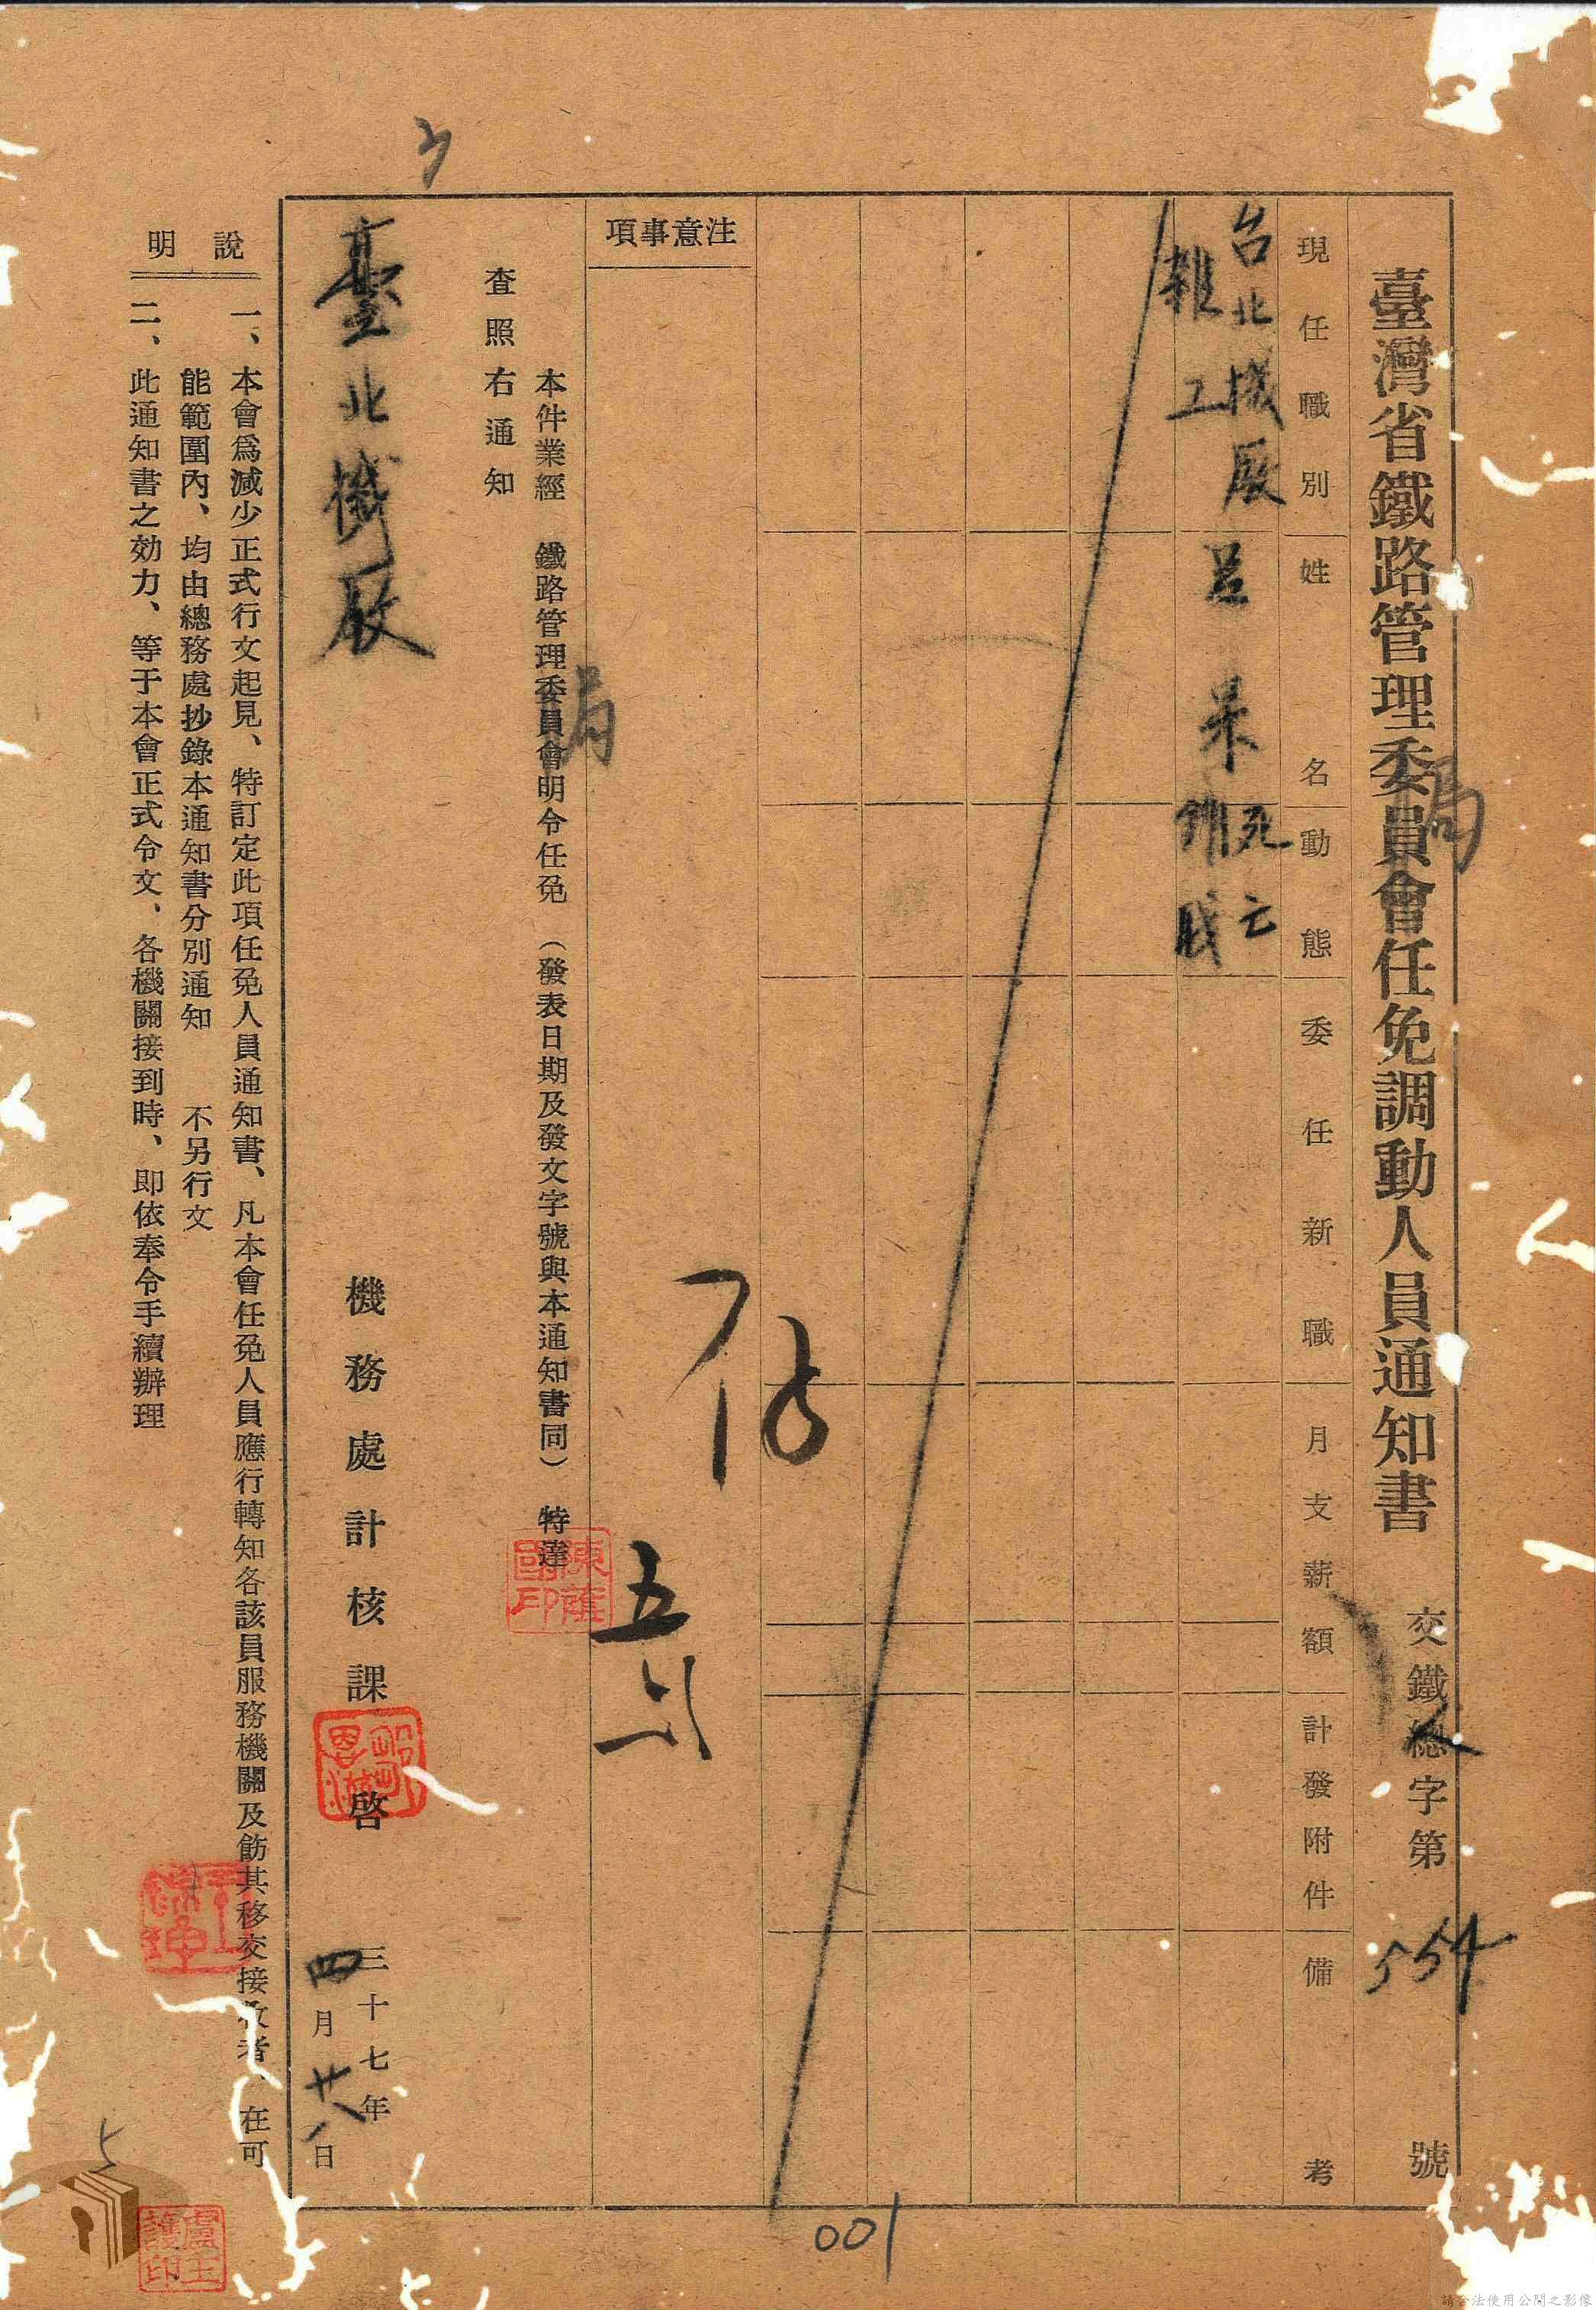 臺灣省鐵路管理委員會任免調動人員通知書
局
交鐵總字第554號
人
現任職別
姓名
動態
委任新職
月支薪額
計發附件
備考
台北機廠
雜工
呂
死亡
銷職
注意事項
五
本件業經 鐵路管理委員會明令任免 (發表日期及發文字號與本通知書同) 特達
局
查照右通知
臺北機厰
機務處計核課 啓
三十七年
四月廿八日
說明
一、本會爲減少正式行文起見、特訂定此項任免人員通知書、凡本會任免人員應行轉知各該員服務機關及飭其移交接收者、在可
能範圍內、均由總務處抄錄本通知書分別通知 不另行文
二、此通知書之効力、等于本會正式令文、各機關接到時、即依奉令手續辦理
001
5
請合法使用公開之影像